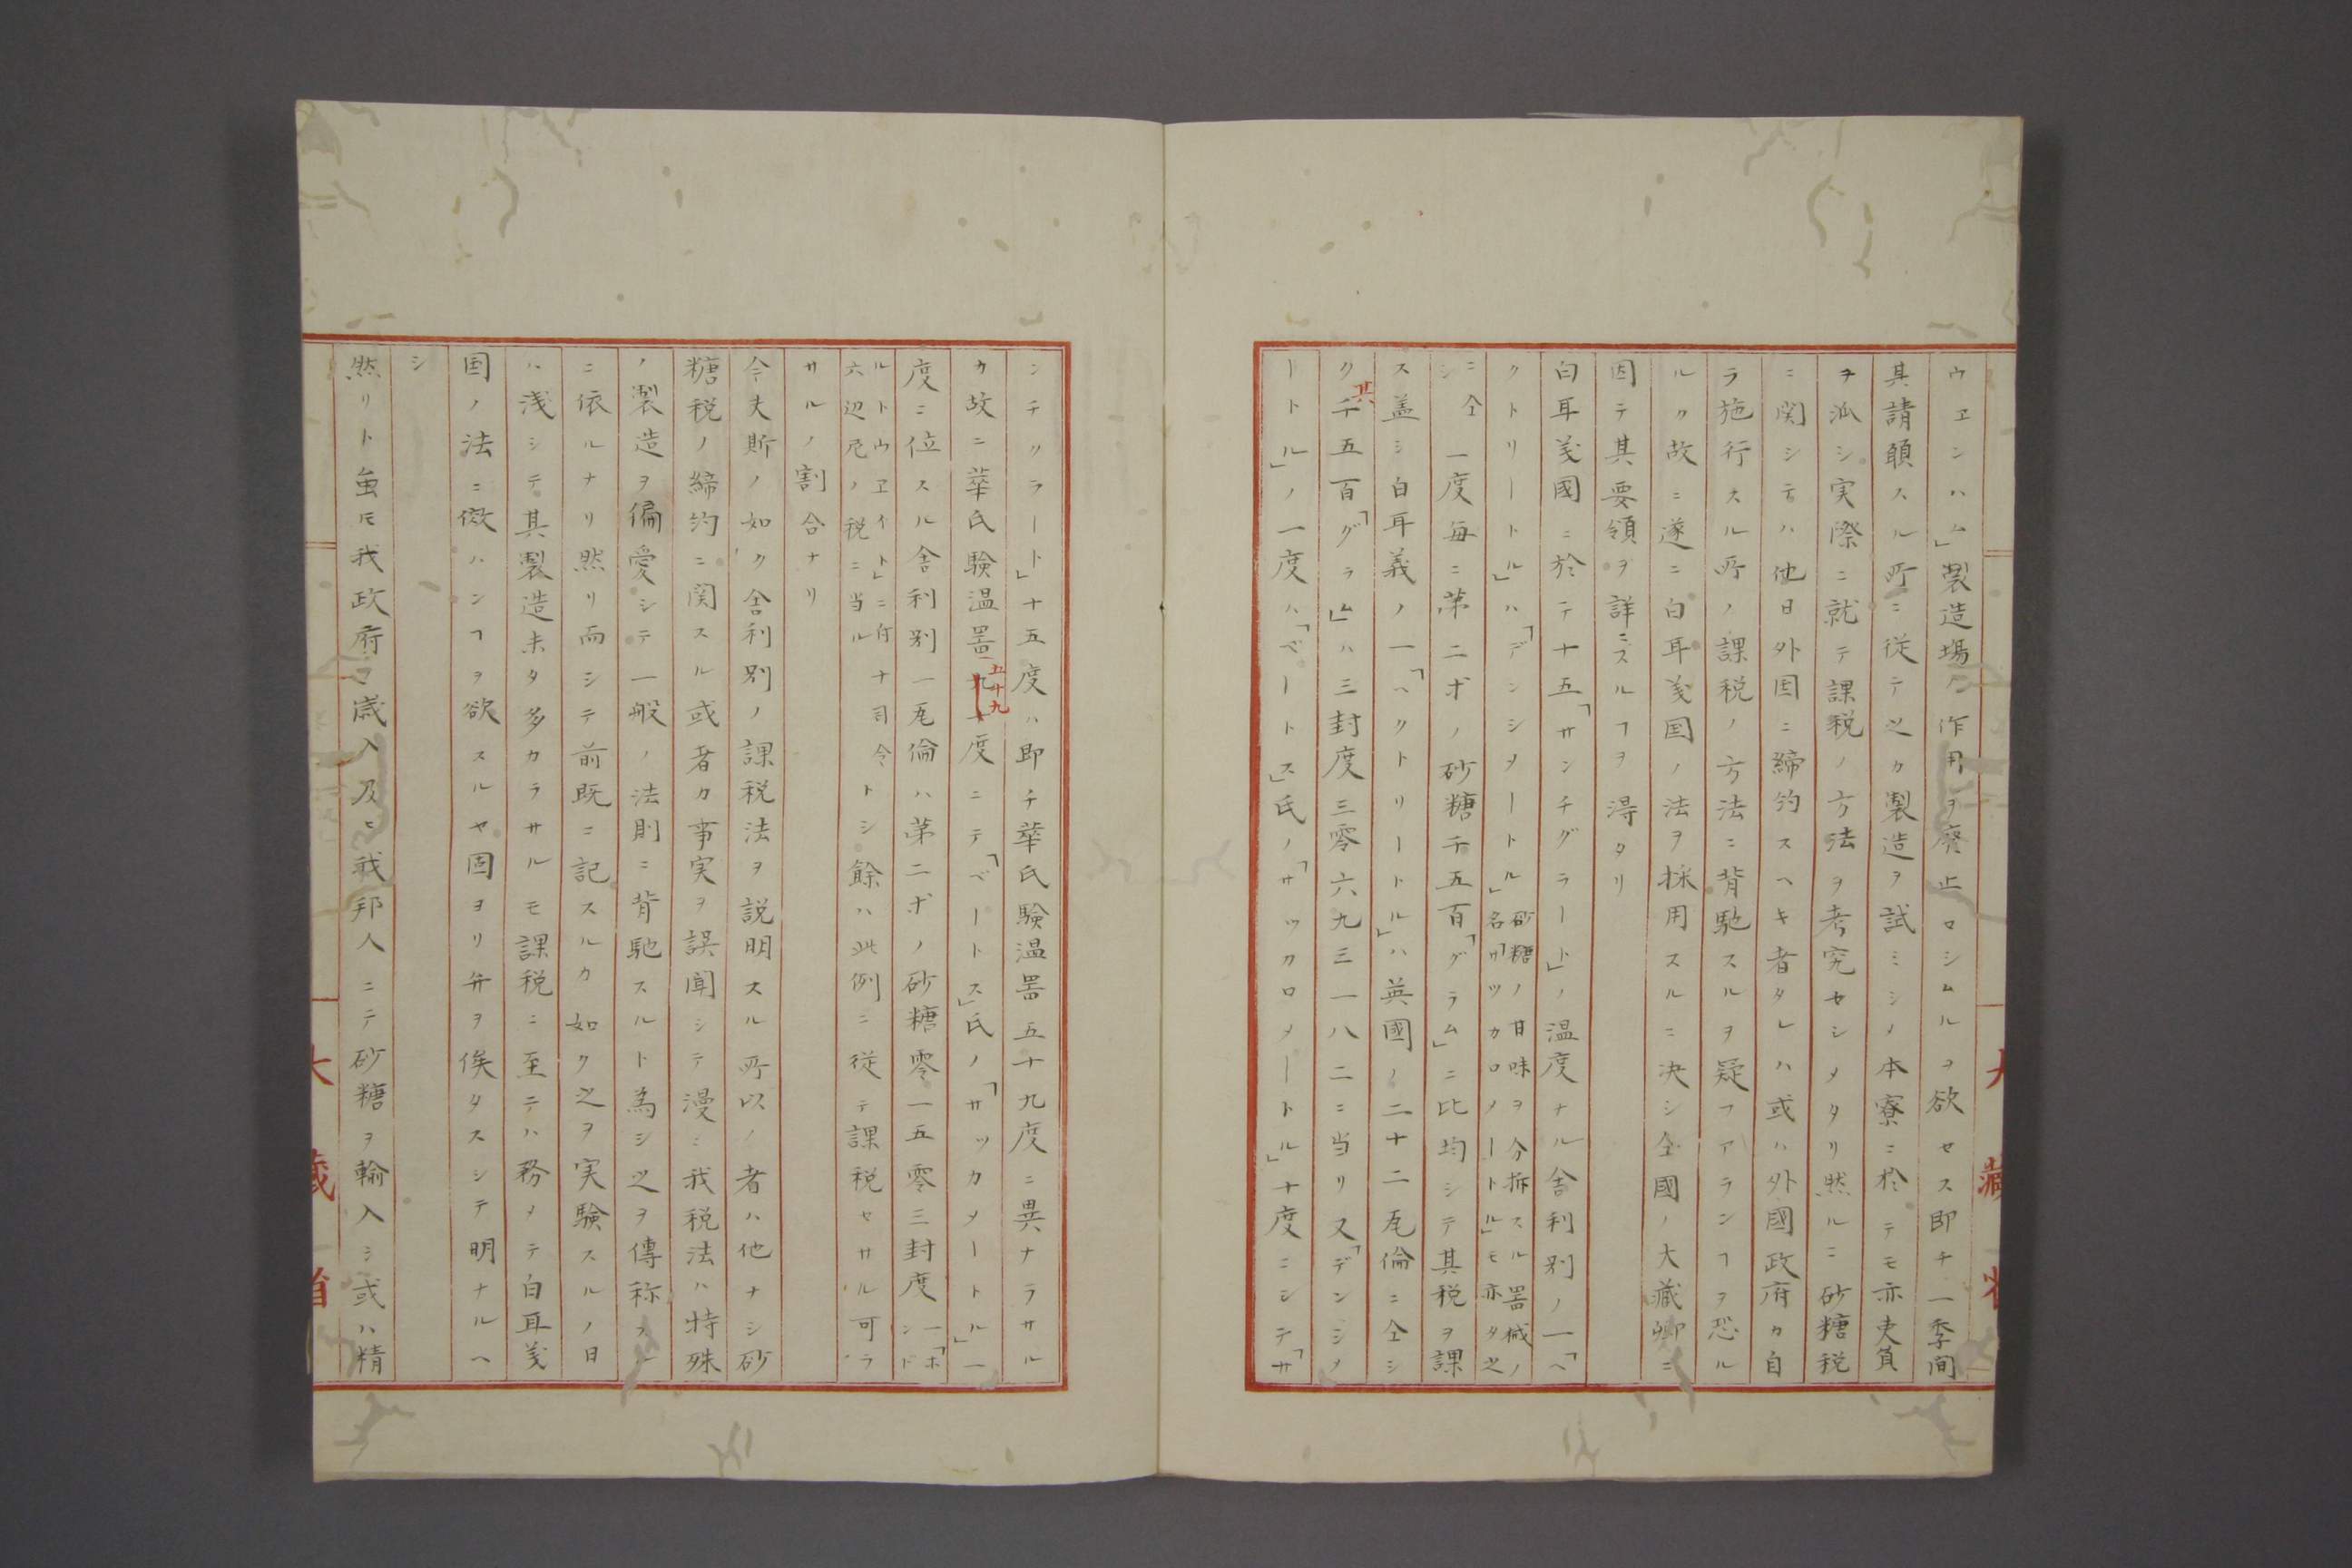 ウヱンハム」製造場ノ作用ヲ廃止ロシムルヲ欲セス即チ一季間
其請願スル所ニ従テ之カ製造ヲ試ミシメ本寮ニ於テモ亦吏負
ヲ派シ実際ニ就テ課税ノ方法ヲ考究セシメタリ然ルニ砂糖税
ニ関シテハ他日外国ニ締約スヘキ者タレハ或ハ外國政府カ自
ラ施行スル所ノ課税ノ方法ニ背馳スルヲ疑フアランヿヲ恐ル
ルク故ニ遂ニ白耳義国ノ法ヲ採用スルニ决シ全國ノ大藏卿ニ
因テ其要領ヲ詳ニスルヿヲ得タリ
白耳義國ニ於テ十五「サンチグラート」ノ温度ナル舎利別ノ一「ヘ
クトリートル」ハ「デンシメートル」砂糖ノ甘味ヲ分拆スル噐械ノ
名「サツカロメートル」モ亦タ之
ニ仝
シ
一度毎ニ第二ボノ砂糖千五百「グラム」ニ比均シテ其税ヲ課
ス盖シ白耳義ノ一「ヘクトリートル」ハ英國ノ二十二瓦倫ニ仝シ
ク其千五百「グラム」ハ三封度三零六九三一八二ニ当リ又「デンシメ
ートル」ノ一度ハ「ベートス」氏ノ「サツカロメートル」十度ニシテ「サ
ンチクラート」十五度ハ即チ華氏驗温噐五十九度ニ異ナラサル
カ故ニ華氏験温噐五十九九十度ニテ「ベートス」氏ノ「サツカメートル」一
度ニ位スル舎利别一瓦倫ハ第二ボノ砂糖零一五零三封度一「ホ
ンド
ルトウヱイト」ニ付ナ司令トシ餘ハ此例ニ従テ課税セサル可ラ
六辺尼ノ税ニ当ル
サルノ割合ナリ
今夫斯ノ如ク舎利别ノ課税法ヲ説明スル所以ノ者ハ他ナシ砂
糖税ノ締約ニ関スル或者カ事実ヲ誤聞シテ漫ニ我税法ハ特殊
ノ製造ヲ偏愛シテ一般ノ法則ニ背馳スルト為シ之ヲ傳称スル
ニ依ルナリ然リ而シテ前既ニ記スルカ如ク之ヲ実験スルノ日
ハ浅シテ其製造未タ多カラサルモ課税ニ至テハ務メテ白耳義
国ノ法ニ傚ハンヿヲ欲スルヤ固ヨリ弁ヲ俟タスシテ明ナルヘ
シ
然リト虽𪜈我政府ニ歳入及ヒ我邦人ニテ砂糖ヲ輸入シ或ハ精
大藏省
大藏省